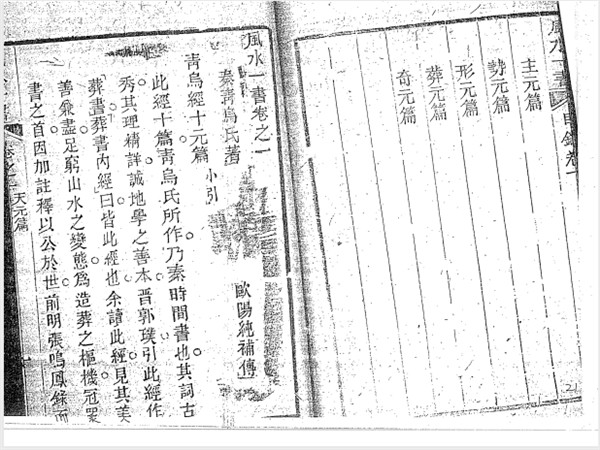 風水一書 目錄 卷一
主元篇
勢元篇
形元篇
葬元篇
奇元篇
風水一書卷之一
秦青烏氏著
歐陽純補傳
青烏經十元篇 小引
此經十篇青烏氏所作乃秦時間書也其詞古
秀其理精詳誠地學之善本晉郭璞引此經作
葬書葬書內經曰皆此經也余讀此經見其美
善兼盡足窮山水之變態為造葬之樞機冠眾
書之首因加註釋以公於世前明張鳴鳳錄而
天元篇